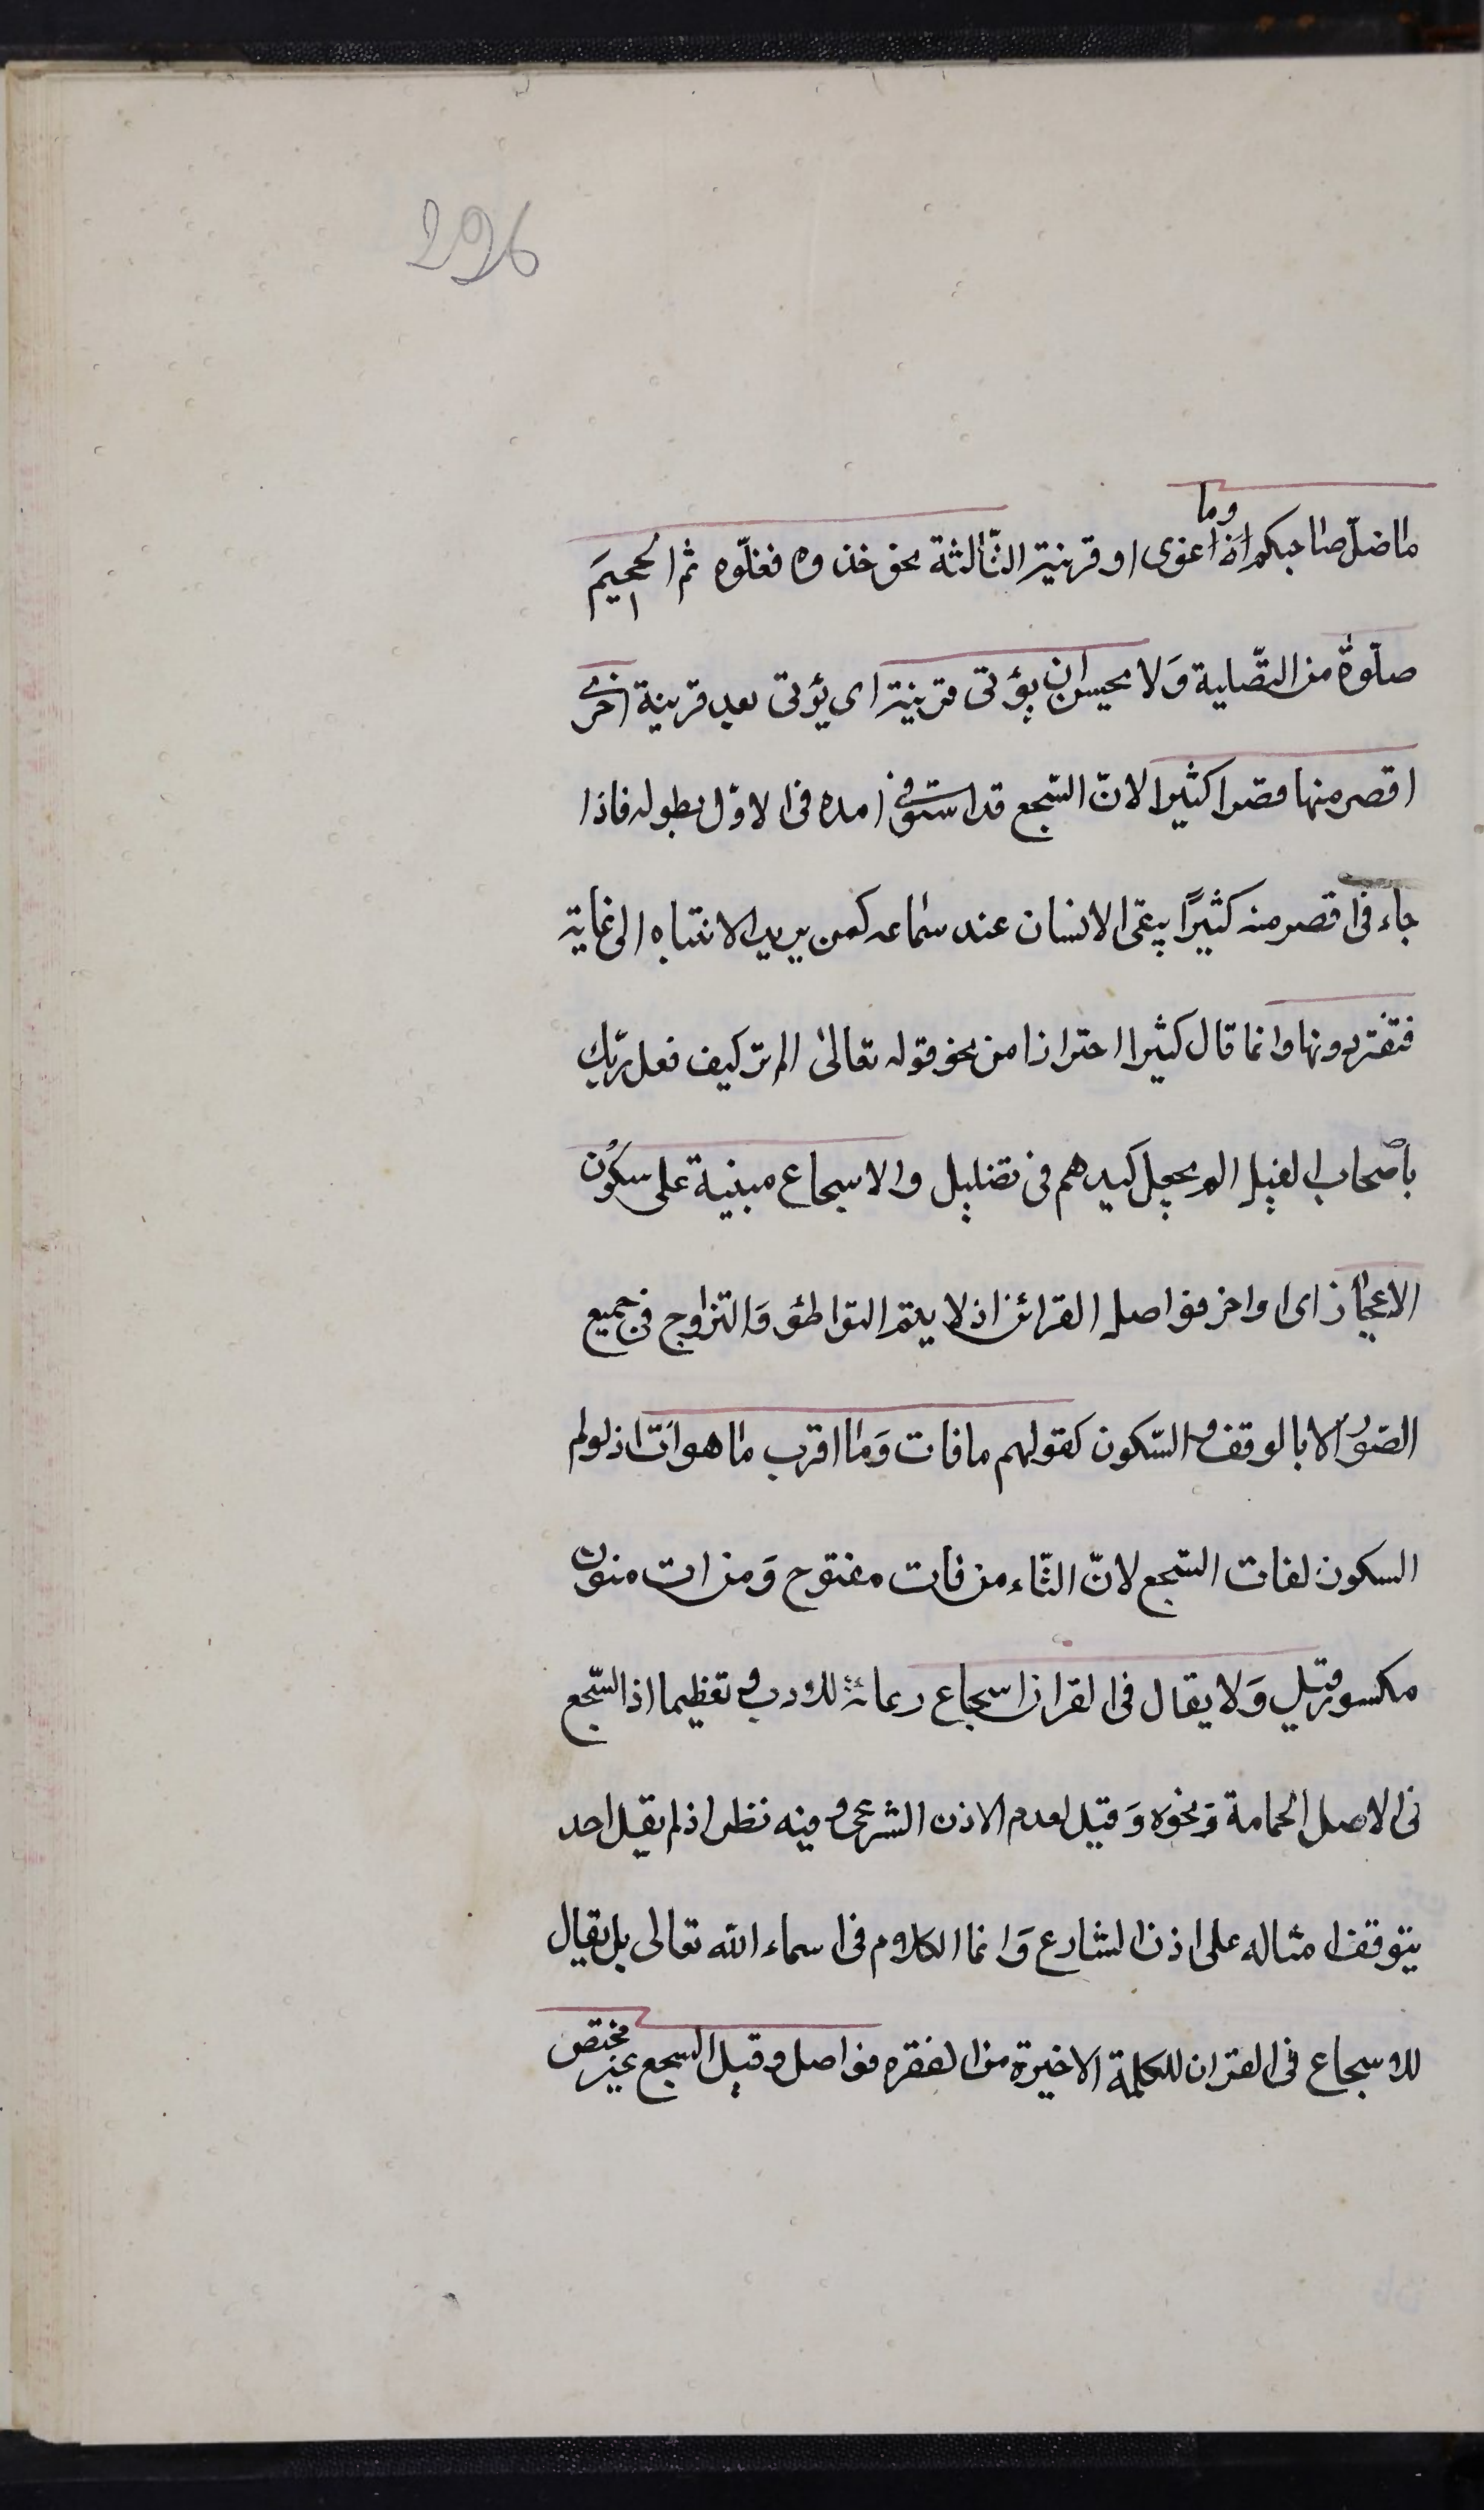 296
وما
ما ضلّ صاحبكم اذا غوى او قرينية الثّالثة نحو خذوه فغلّوه ثم الجحيمَ
صلّوةٌ من التّصلية وَلا يحسن ان يؤتى قرينية اى يؤتى بعد قرينية اخرى
اقصر منها قصرا كثيرا لانّ السّجع قد استوفى امده فى الاوّل بطوله فاذا
جاء فى اقصر منه كثيرًا يبقى الانسان عند سماعه كمن يريد الانتباه الى غاية
فتفتر دونها وانما قال كثيرا احترازا من نحو قوله تعالىٰ الم تر كيف فعل ربّك
باصحاب الفيل الم يجعل كيدهم فى تضليل والاسجاع مبنية على سكُون
الاعجاز اى اواخر فواصل القرائن اذ لا يتم التواطئو وَالتزاوج فى جميع
الصّوَر الا بالوقف والسّكون كقولهم ما فات وَما اقرب ما هو اٰت اذ لو لم
السكون لفات السّجع لانّ التّاء من فات مفتوح وَمن ات منون
مكسور قيل وَلا يقال فى القران اسجاع رعاية للادب و تعظيما اذ السّجع
فى الاصل الحمامة وَنحوه وَقيل لعدم الاذن الشرعى و فيه نظر اذ لم يقل احد
يتوقف امثاله على اذن الشارع وَانما الكلام فى اسماء اللّه تعالى بل يقال
للاسجاع فى القران للكلمة الاخيرة من الفقره فواصل وقيل السجع غير مختص